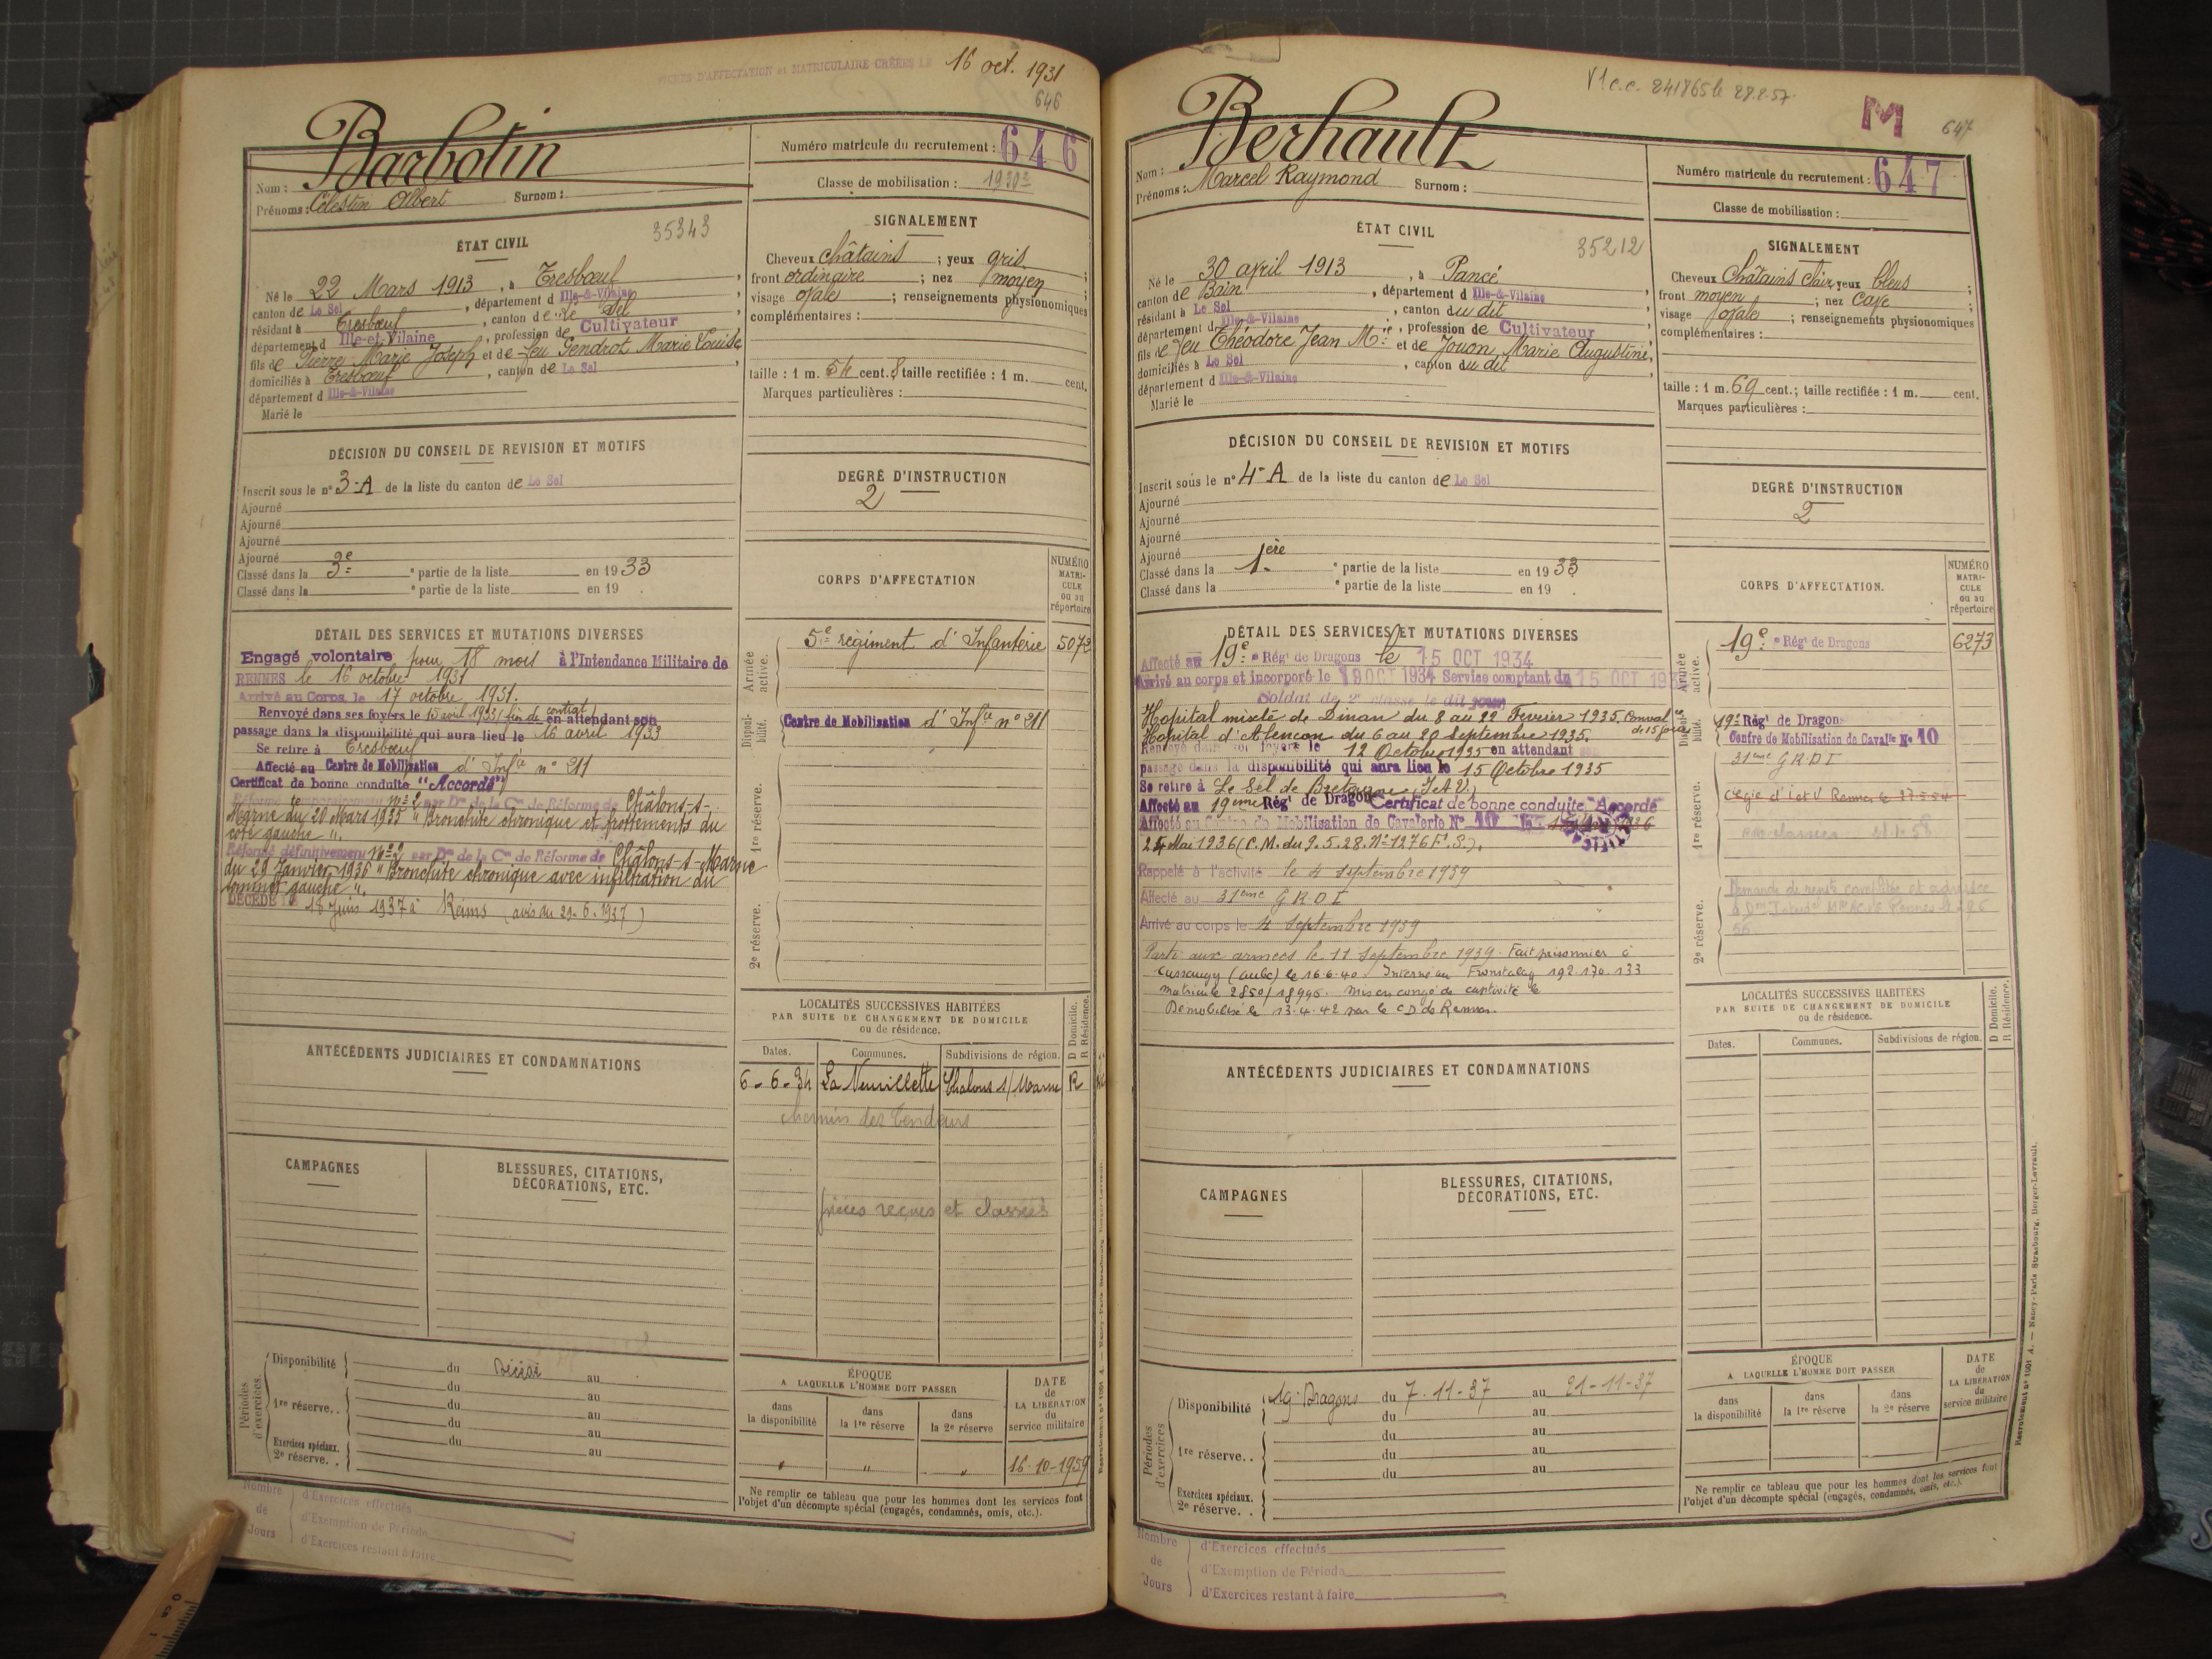 FICHES D'AFFECTATION et MATRICULAIRE CRÉÉES LE 16 oct. 1931
646
Barbotin
Nom :
Prénoms : Célestin Albert Surnom :
Numéro matricule du recrutement : 646
Classe de mobilisation : 1930
ÉTAT CIVIL
35343
Né le 22 Mars 1913, à Tresbœuf,
canton de Le Sel, département d Ille-&-Vilaine,
résidant à Tresbœuf, canton de Sel,
département d Ille-et-Vilaine, profession de Cultivateur
fils de Pierre Marie Joseph et de feu Gendrot Marie Louise,
domiciliés à Tresbœuf, canton de Le Sel,
département d Ille-&-Vilaine
Marié le
SIGNALEMENT
Cheveux châtains ; yeux gris ;
front ordinaire ; nez moyen ;
visage ovale ; renseignements physionomiques
complémentaires :
taille : 1 m. 54 cent. 8 taille rectifiée : 1 m. cent.
Marques particulières :
DÉCISION DU CONSEIL DE REVISION ET MOTIFS
Inscrit sous le n° 3-A de la liste du canton de Le Sel
Ajourné
Ajourné
Ajourné
Ajourné
Classé dans la 3e ° partie de la liste en 1933
Classé dans la ° partie de la liste en 19 .
DEGRÉ D'INSTRUCTION
2
CORPS D'AFFECTATION
NUMÉRO MATRI-CULE ou au répertoire
Armée active.
5e régiment d'Infanterie 5072
Disponibilité.
Centre de Mobilisation d'Infie n° 211
1re réserve.
2e réserve.
DÉTAIL DES SERVICES ET MUTATIONS DIVERSES
Engagé volontaire pour 18 mois à l'Intendance Militaire de
RENNES le 16 octobre 1931
Arrivé au Corps le 17 octobre 1931.
Renvoyé dans ses foyers le 15 avril 1933 (fin de contrat) en attendant son
passage dans la disponibilité qui aura lieu le 16 avril 1933
Se retire à Tresbœuf
Affecté au Centre de Mobilisation d'Infie n° 211
Certificat de bonne conduite "Accordé"
Réformé temporairement n° 2 par Don de la Con de Réforme de Châlons-s-
Marne du 20 Mars 1935 "Bronchite chronique et frottements du
côté gauche".
Réformé définitivement n° 2 par Don de la Con de Réforme de Châlons-s-Marne
du 29 Janvier 1936 "Bronchite chronique avec infiltration du
sommet gauche".
DÉCÉDÉ LE 18 Juin 1937 à Reims (avis du 29-6-1937)
ANTÉCÉDENTS JUDICIAIRES ET CONDAMNATIONS
CAMPAGNES
BLESSURES, CITATIONS, DÉCORATIONS, ETC.
LOCALITÉS SUCCESSIVES HABITÉES
PAR SUITE DE CHANGEMENT DE DOMICILE
ou de résidence.
D Domicile. R Résidence.
Dates. Communes. Subdivisions de région.
6-6-34 La Neuvillette Chalons s/Marne R
chemin des
pièces reçues et classées
Périodes d'exercices.
Disponibilité du Décédé au
du au
1re réserve.. du au
du au
Exercices spéciaux. 2e réserve. . du au
ÉPOQUE
A LAQUELLE L'HOMME DOIT PASSER
dans la disponibilité dans la 1re réserve dans la 2e réserve
DATE de LA LIBÉRATION du service militaire
" " " 16-10-1959
Ne remplir ce tableau que pour les hommes dont les services font
l'objet d'un décompte spécial (engagés, condamnés, omis, etc.).
Nombre de Jours
d'Exercices effectués
d'Exemption de Période
d'Exercices restant à faire
V1c.c. 241865 le 28.2.57
M
647
Berhault
Nom :
Prénoms : Marcel Raymond Surnom :
Numéro matricule du recrutement : 647
Classe de mobilisation :
ÉTAT CIVIL
35212
Né le 30 avril 1913, à Pancé,
canton de Bain, département d Ille-&-Vilaine,
résidant à Le Sel, canton du dit,
département d Ille-&-Vilaine, profession de Cultivateur,
fils de feu Théodore Jean Mie et de Jouon Marie Augustine,
domiciliés à Le Sel, canton du dit,
département d Ille-&-Vilaine
Marié le
SIGNALEMENT
Cheveux Châtains clair, yeux bleus ;
front moyen ; nez cave ;
visage ovale ; renseignements physionomiques
complémentaires :
taille : 1 m. 69 cent. ; taille rectifiée : 1 m. cent.
Marques particulières :
DÉCISION DU CONSEIL DE REVISION ET MOTIFS
Inscrit sous le n° 4-A de la liste du canton de Le Sel
Ajourné
Ajourné
Ajourné
Ajourné
Classé dans la 1ère ° partie de la liste en 1933
Classé dans la ° partie de la liste en 19 .
DEGRÉ D'INSTRUCTION
2
CORPS D'AFFECTATION.
NUMÉRO MATRI-CULE ou au répertoire
Armée active.
19e Régt de Dragons 6273
Disponibilité.
19e Régt de Dragons
Centre de Mobilisation de Cavalie N° 10
31eme G R D I
1re réserve.
2e réserve.
DÉTAIL DES SERVICES ET MUTATIONS DIVERSES
Affecté au 19e Régt de Dragons le 15 OCT 1934
Arrivé au corps et incorporé le 19 OCT 1934 Service comptant du 15 OCT 193
Soldat de 2e classe le dit jour
Hopital mixte de Dinan du 8 au 22 Fevrier 1935. Conval de 15 jours
Hopital d'Alencon du 6 au 20 Septembre 1935.
Renvoyé dans ses foyers le 12 Octobre 1935 en attendant son
passage dans la disponibilité qui aura lieu le 15 Octobre 1935
Se retire à Le Sel de Bretagne (I & V.)
Affecté au 19eme Régt de Dragons Certificat de bonne conduite "Accordé"
Affecté au Centre de Mobilisation de Cavalerie N° 10 le
24 Mai 1936 (C.M. du 9.5.28. N° 1276 F.S.).
Rappelé à l'activité le 4 Septembre 1939
Affecté au 31eme G R D I
Arrivé au corps le 4 Septembre 1939
Parti aux armées le 11 Septembre 1939. Fait prisonnier à
Cussangy (Aube) le 16.6.40 Interné au Frontalag 192.170.133
matricule 2850/18996. Mis en congé de captivité le
Démobilisé le 13.4.42 par le CD de Rennes.
ANTÉCÉDENTS JUDICIAIRES ET CONDAMNATIONS
CAMPAGNES
BLESSURES, CITATIONS, DÉCORATIONS, ETC.
LOCALITÉS SUCCESSIVES HABITÉES
PAR SUITE DE CHANGEMENT DE DOMICILE
ou de résidence.
D Domicile. R Résidence.
Dates. Communes. Subdivisions de région.
Périodes d'exercices
Disponibilité 19e Dragons du 7-11-37 au 21-11-37
du au
1re réserve.. du au
du au
du au
Exercices spéciaux. 2e réserve. .
ÉPOQUE
A LAQUELLE L'HOMME DOIT PASSER
dans la disponibilité dans la 1re réserve dans la 2e réserve
DATE de LA LIBÉRATION du service militaire
Ne remplir ce tableau que pour les hommes dont les services font
l'objet d'un décompte spécial (engagés, condamnés, omis, etc.).
Recrutement n° 1001 A. — Nancy-Paris-Strasbourg, Berger-Levrault.
Nombre de Jours
d'Exercices effectués
d'Exemption de Période
d'Exercices restant à faire